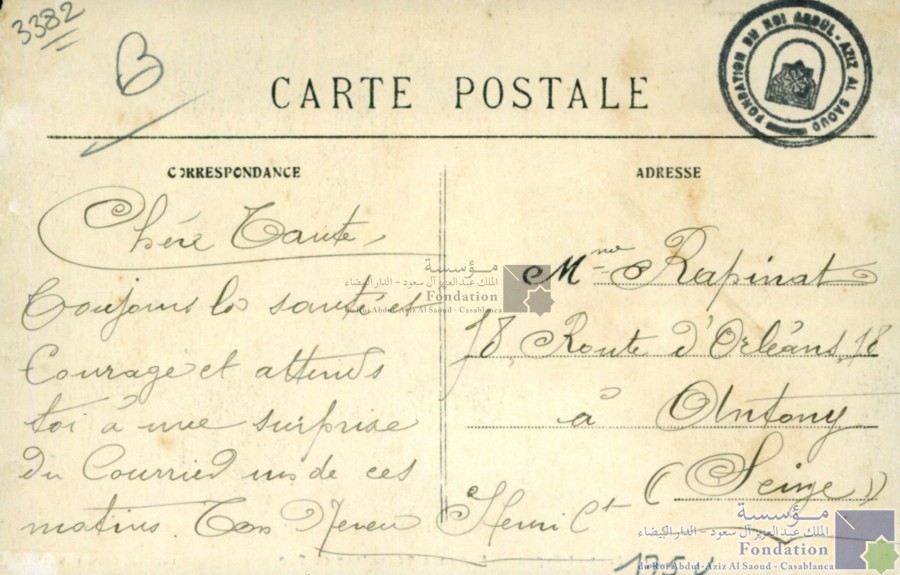 3382
B
CARTE POSTALE
FONDATION DU ROI ABDUL-AZIZ AL SAOUD
CORRESPONDANCE
Chére Tante,
Toujours la santé et
Courage et attends
toi à une surprise
du Courrier un de ces
matins. Ton Neveu
Henri Ct
ADRESSE
Mme Rapinat
18, Route d'Orléans, 18
à Antony
(Seine)
مؤسسة
الملك عبد العزيز آل سعود - الدار البيضاء
Fondation
du Roi Abdul-Aziz Al Saoud - Casablanca
مؤسسة
الملك عبد العزيز آل سعود - الدار البيضاء
Fondation
du Roi Abdul-Aziz Al Saoud - Casablanca